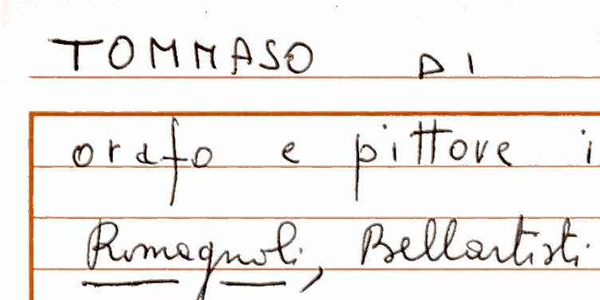 TOMMASO DI
orafo e pittore i
Romagnoli, Bellartisti